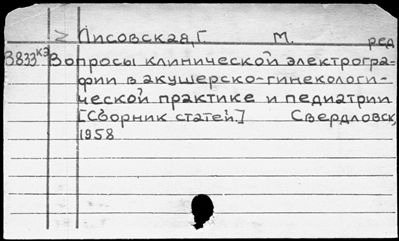 Лисовская, Г. М. ред
3833кэ Вопросы клинической электрогра-
фии в акушерско-гинекологи-
ческой практике и педиатрии
[Сборник статей.] Свердловск,
1958